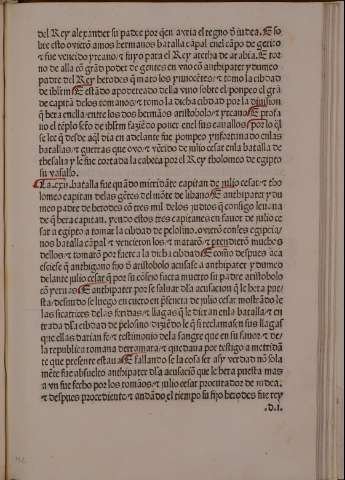 del Rey alexander su padre por quien auria el regno de judea. E so
bre esto ouierō amos hermanos batalla cāpal enel cāpo de gerico
⁊ fue vencido yrcano ⁊ fuyo para el Rey aretha de arabia. E tor
no de alla cō grād poder de gentes en vno cō anthipater ydumeo
padre del Rey herodes q̄ mato los ynnocētes ⁊ tomo la cibdad
de ihrlm E estādo apoderado della vino sobre el ponpeo el grā
de capitā delos romanos ⁊ tomo la dicha cibdad por la diuision
q̄ hera enella entre los dos hermāos aristobolo ⁊ yrcano E profa
no el tēplo scto de ihrlm faziēdo poner enel sus cauallos por lo q̄l
se lee q̄ desde aq̄l dia en adelante fue pompeo ynfortunado enlas
batallas ⁊ guerras que ouo ⁊ vēcido de julio cesar enla batalla de
thesalia y le fue cortada la cabeça por el Rey tholomeo de egipto
su vasallo.
La batalla fue quādo mitridāte capitan de julio cesar ⁊ tho
lomeo capitan delas gētes del mōte de libano E anthipater ydu
meo padre de herodes cō tres mil delos judios q̄ consigo leuaua
de q̄ hera capitan. yendo estos tres capitanes en fauor de julio ce
sar a egipto a tomar la cibdad de pelosino. ouierō conlos egipcia
nos batalla cāpal ⁊ vencieron los ⁊ matarō ⁊ prendierō muchos
dellos ⁊ tomarō por fuerça la dicha cibdad E como despues aca
esciese q̄ anthigano fijo d̄ aristobolo acusase a anthipater ydumeo
delante julio cesar q̄ por su cōsejo fuera muerto su padre aristobolo
cō yeruas E anthipater por se saluar dela acusacion q̄ le hera pue
sta / desnudose luego en cuero en p̄sencia de julio cesar mostrādo le
las sicatrices delas feridas ⁊ llagas q̄ le dieran enla batalla ⁊ en
trada dela cibdad de pelosino diziēdo le q̄ si reclamasen sus llagas
que ellas darian fe ⁊ testimonio dela sangre que en su fauor ⁊ de
la republica romana derramara ⁊ quedaua por testigo a metridā
te que presente estaua E fallando se la cosa ser asy verdad nō sola
mēte fue absuelto anthipater dela acusaciō que le hera puesta mas
a vn fue fecho por los romāos ⁊ julio cesar procurador de iudea.
⁊ despues procediente ⁊ andādo el tiempo su fijo herodes fue rey
.d.i.